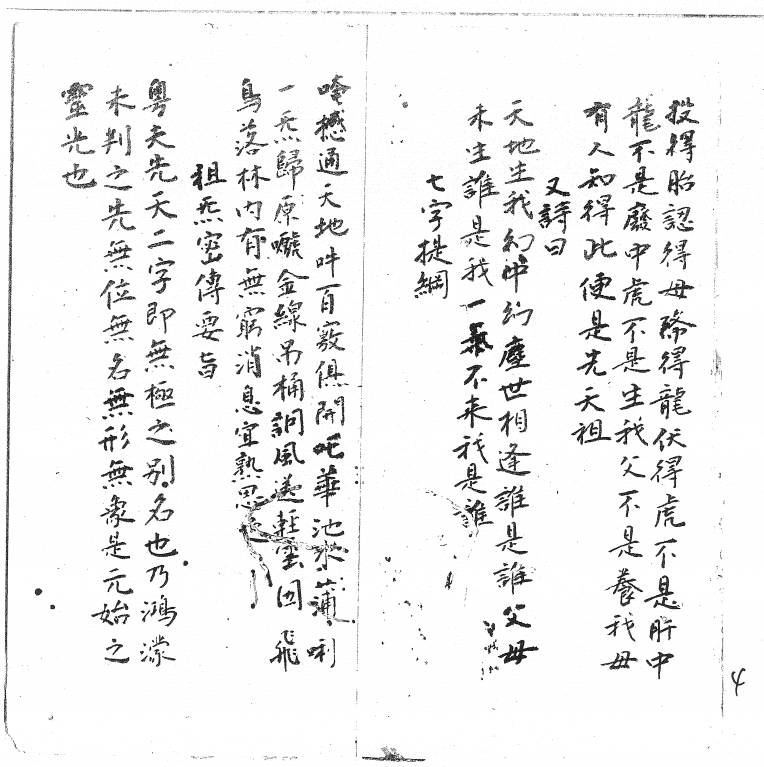 投得胎認得母降得龍伏得虎不是肝中
龍不是廢中虎不是生我父不是養我母
有人知得此便是先天祖
又詩曰
天地生我幻中幻塵世相逢誰是誰父母
未生誰是我一氣不來我是誰
七字提綱
唵憾通天地吽百竅俱開吒華池水滿唎
一炁歸原嚨金線吊桶詗風送輕雲㘞飛
鳥落林內有無窮消息宜熟思之
祖炁密傳要旨
粵夫先天二字即無極之別名也乃鴻濛
未判之先無位無名無形無象是元始之
靈光也
4